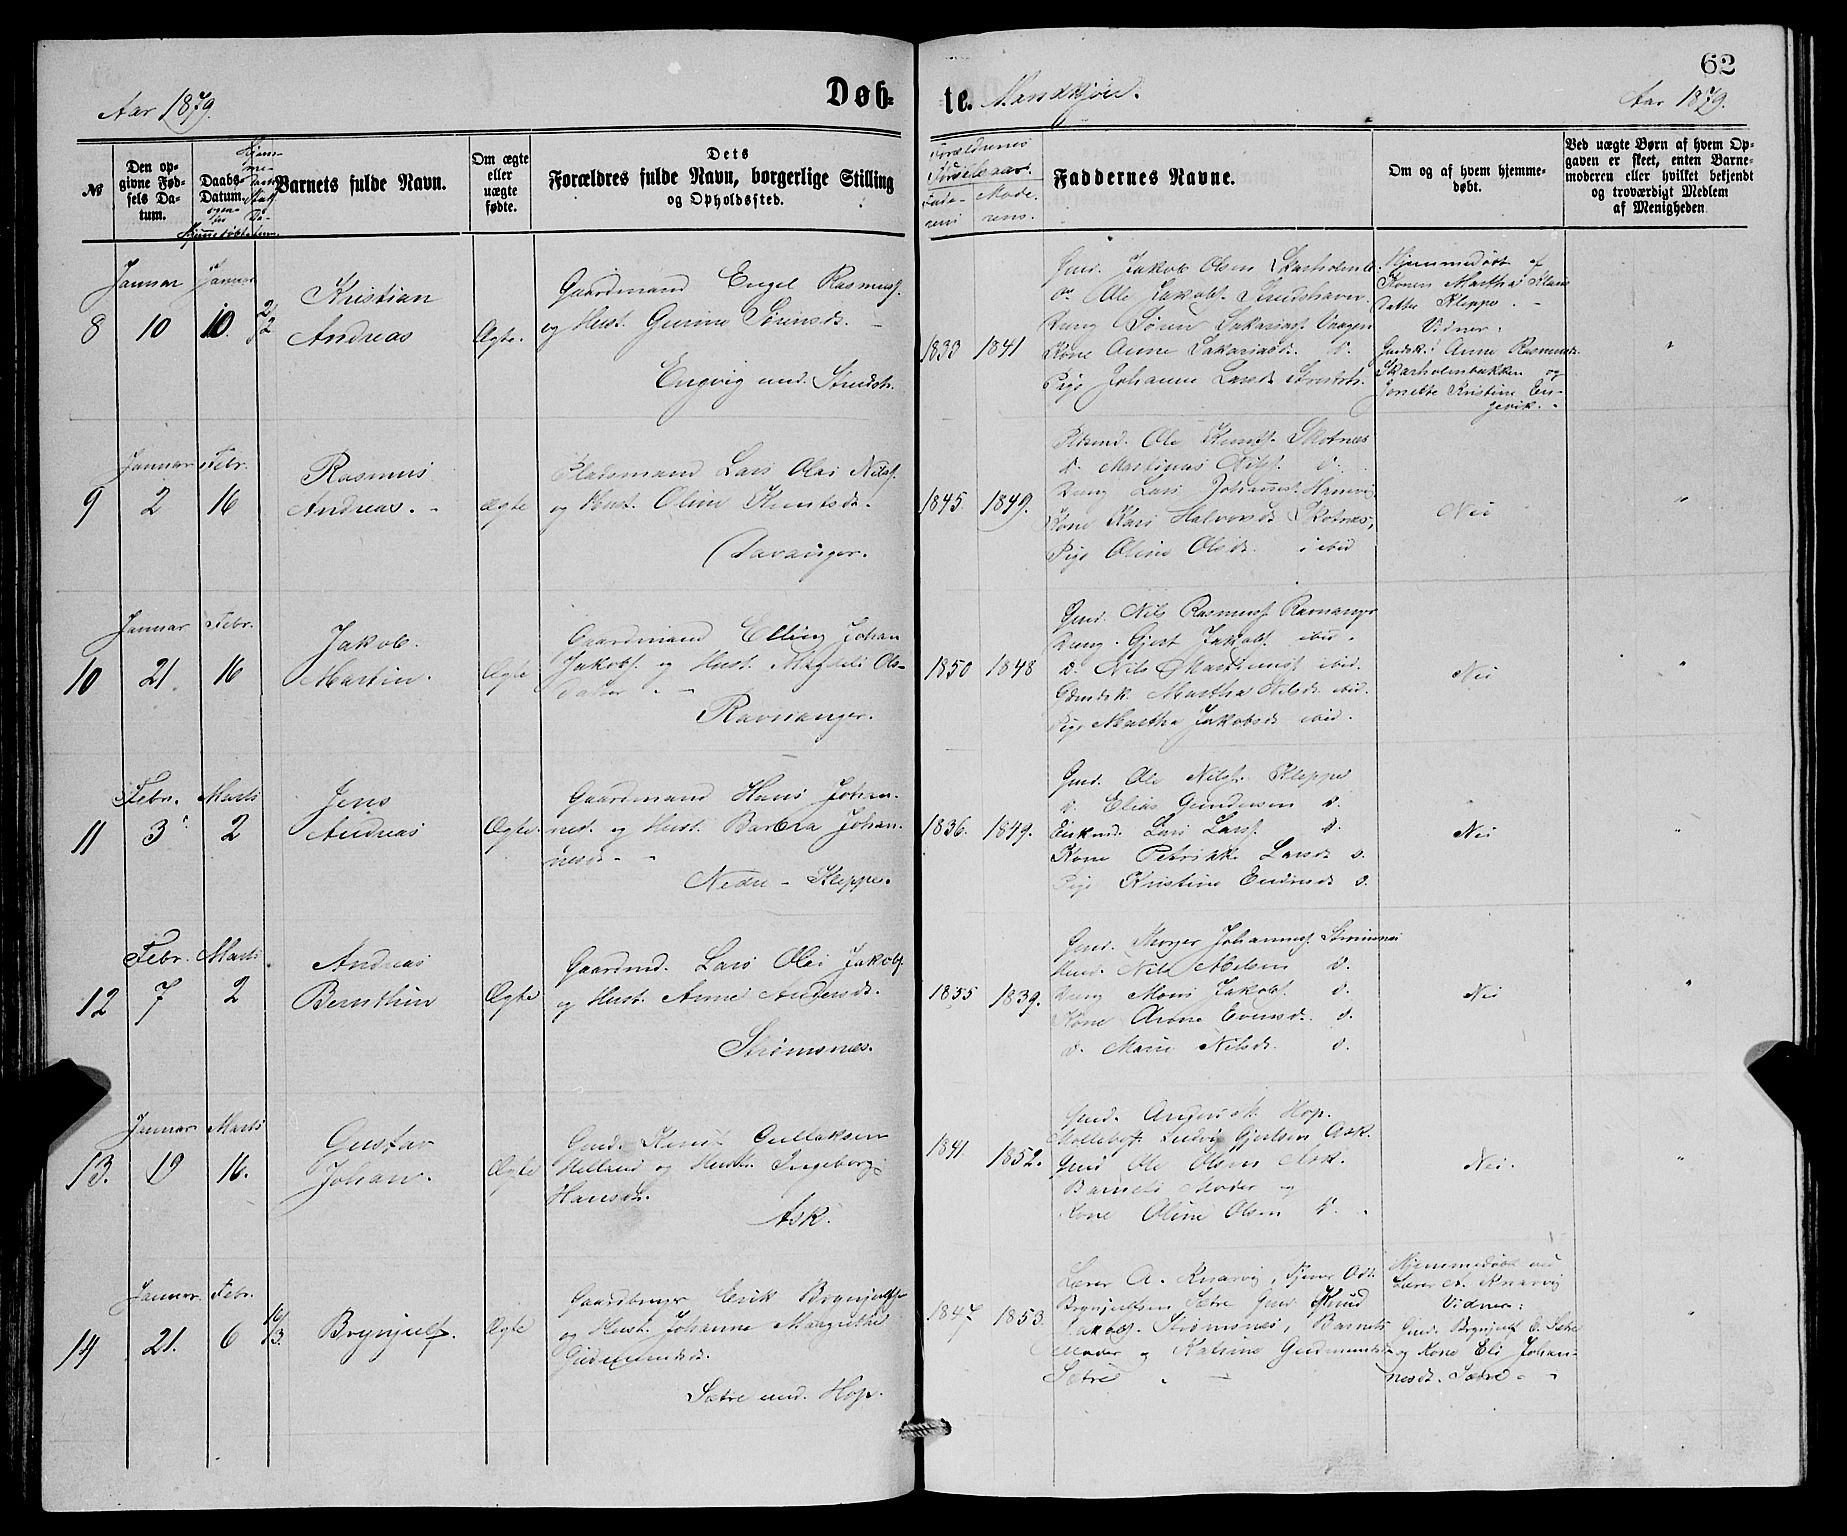 62
Aar 1879.
Døb-
te. Mandkjøn.
Aar 1879.
№
Den op-
givne Fød-
sels Da-
tum.
Daabs-
Datum.
Barnets fulde Navn.
Om ægte
eller
uægte
fødte.
Dets
Forældres fulde Navn, borgerlige Stilling
og Opholdssted.
Forældrenes
Fødselsaar.
Fade-
rens
Mode-
rens.
Faddernes Navne.
Om og af hvem hjemme-
døbt.
Ved uægte Børn af hvem Op-
gaven er skeet, enten Barne-
moderen eller hvilket bekjendt
og troværdigt Medlem
af Menigheden
8
Januar
10
Januar
10.
2/2
Kristian
Andreas
Ægte.
Gaardmand Engel Rasmuss.
og Hust. Gurine Sørensd. –
Engvig und.
1833 1841
Gmd. Jakob Olsen
do. Ole Jakobs.
Dreng Søren Sakarias. Vaagen
Kone Anne Sakariasd. d.
Pige Johanne Larsd.
Hjemmedøbt af
Konen Martha Klaus
Datter Kleppe. –
Vidner:
Anne Rasmusd.
Skarholmbakken og
Kristine En-
gevik. -
"
9
Januar
2
Febr.
16
Rasmus
Andreas. -
Ægte
Pladsmand Lars Olai Nilss.
og Hust. Oline Knutsd. -
Davanger.
1845. 1849.
Ole Knuts. Skotnes
d. Martinus Nilss. d.
Dreng Lars Johannes.
Kone Kari Halvorsd. Skotnes,
Pige Oline Olsd. ibid
Nei
"
10
Januar
21
Febr.
16
Jakob
Martin.
Ægte
Gaardmand Elling Johan
Jakobs. og Hust. Magdeli Ols-
datter. –
Ravnanger.
1850 1848
Gmd. Nils Rasmuss. Ravnanger
Dreng. Gjert Jakobs. ibid.
d. Nils Martinus. ibid.
Martha Nilsd. ibid.
Pige Martha Jakobsd. ibid.
Nei
"
11
Febr.
3
Marts
2
Jens
Andreas
Ægte.
Gaardmand Hans Johan-
nes. og Hust. Barbra Johan-
nesd. -
Nedre - Kleppe.
1836. 1849.
Gmd. Ole Nilss. Kleppe
d. Elias Gundersen d.
Lars Larss. d.
Kone Petrikke Larsd. d.
Pige Kristine d.
Nei
"
12
Febr.
7
Marts
2
Andreas
Bernthin
Ægte
Gaardmd. Lars Olai Jakobs.
og Hust. Anne Andersd.
Strømsnes.
1855 1839.
Gmd. Johannes. Strømsnes
Nils Nilsen d.
Dreng Mons Jakobs. d.
Kone d.
d. Marie Nilsd. d.
Nei
"
13.
Januar
19
Marts
16.
Gustav
Johan.
Ægte
Gmd. Knut Gullaksen
Helland og Hust. Ingeborg
Hansd.
Ask.
1841 1852.
Gmd. Hop.
Ludvig Gjertsen Ask.
Gmd Ole Olsen Ask.
Barnets Moder og
Kone Oline Olsen d.
Nei.
"
14
Januar
21.
Febr.
6
Brynjulf.
Ægte
Gaardbruger Erik Brynjulfs.
og Hust. Johanne Margrethe
Gudmundsd.
Sætre und. Hop.
1847 1853.
Lærer A. Knarvig,
Brynjulfsen Sætre Gmd Knud
Jakobs. Strømsnes, Barnets
Moder og Katrine Gudmundsd.
Sætre -
Hjemmedøbt ved
Lærer A. Knarvig
Vidner:
Gmd. Brynjulf E. Sætre
og Kone Eli Johan-
nesd. Sætre -
"